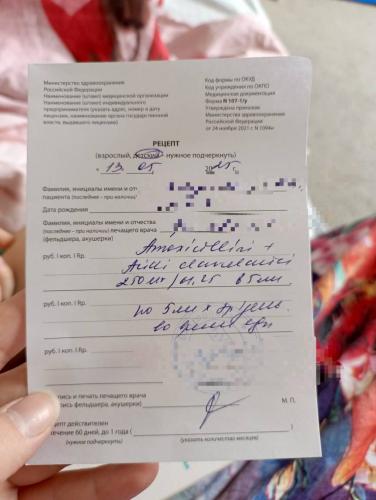 Министерство здравоохранения
Российской Федерации
Наименование (штамп) медицинской организации
Наименование (штамп) индивидуального
предпринимателя (указать адрес, номер и дату
лицензии, наименование органа государственной
власти, выдавшего лицензию)
Код формы по ОКУД
Код учреждения по ОКПО
Медицинская документация
Форма N 107-1/у
Утверждена приказом
Министерства здравоохранения
Российской Федерации
от 24 ноября 2021 г. N 1094н
РЕЦЕПТ
(взрослый, детский - нужное подчеркнуть)
" 13 " 05 2025г.
Фамилия, инициалы имени и от
пациента (последнее - при наличии)
Дата рождения
Фамилия, инициалы имени и отчества
(последнее - при наличии) лечащего врача
(фельдшера, акушерки)
руб. I коп. I Rp. Amoxicillini +
Acidi clavulanici
250мг/ в 5мл
руб. I коп. I Rp. по 5мл х
во время еды
руб. I коп. I Rp.
пись и печать лечащего врача
пись фельдшера, акушерки) М. П.
цепт действителен
течение 60 дней, до 1 года ( )
(нужное подчеркнуть) (указать количество месяцев)